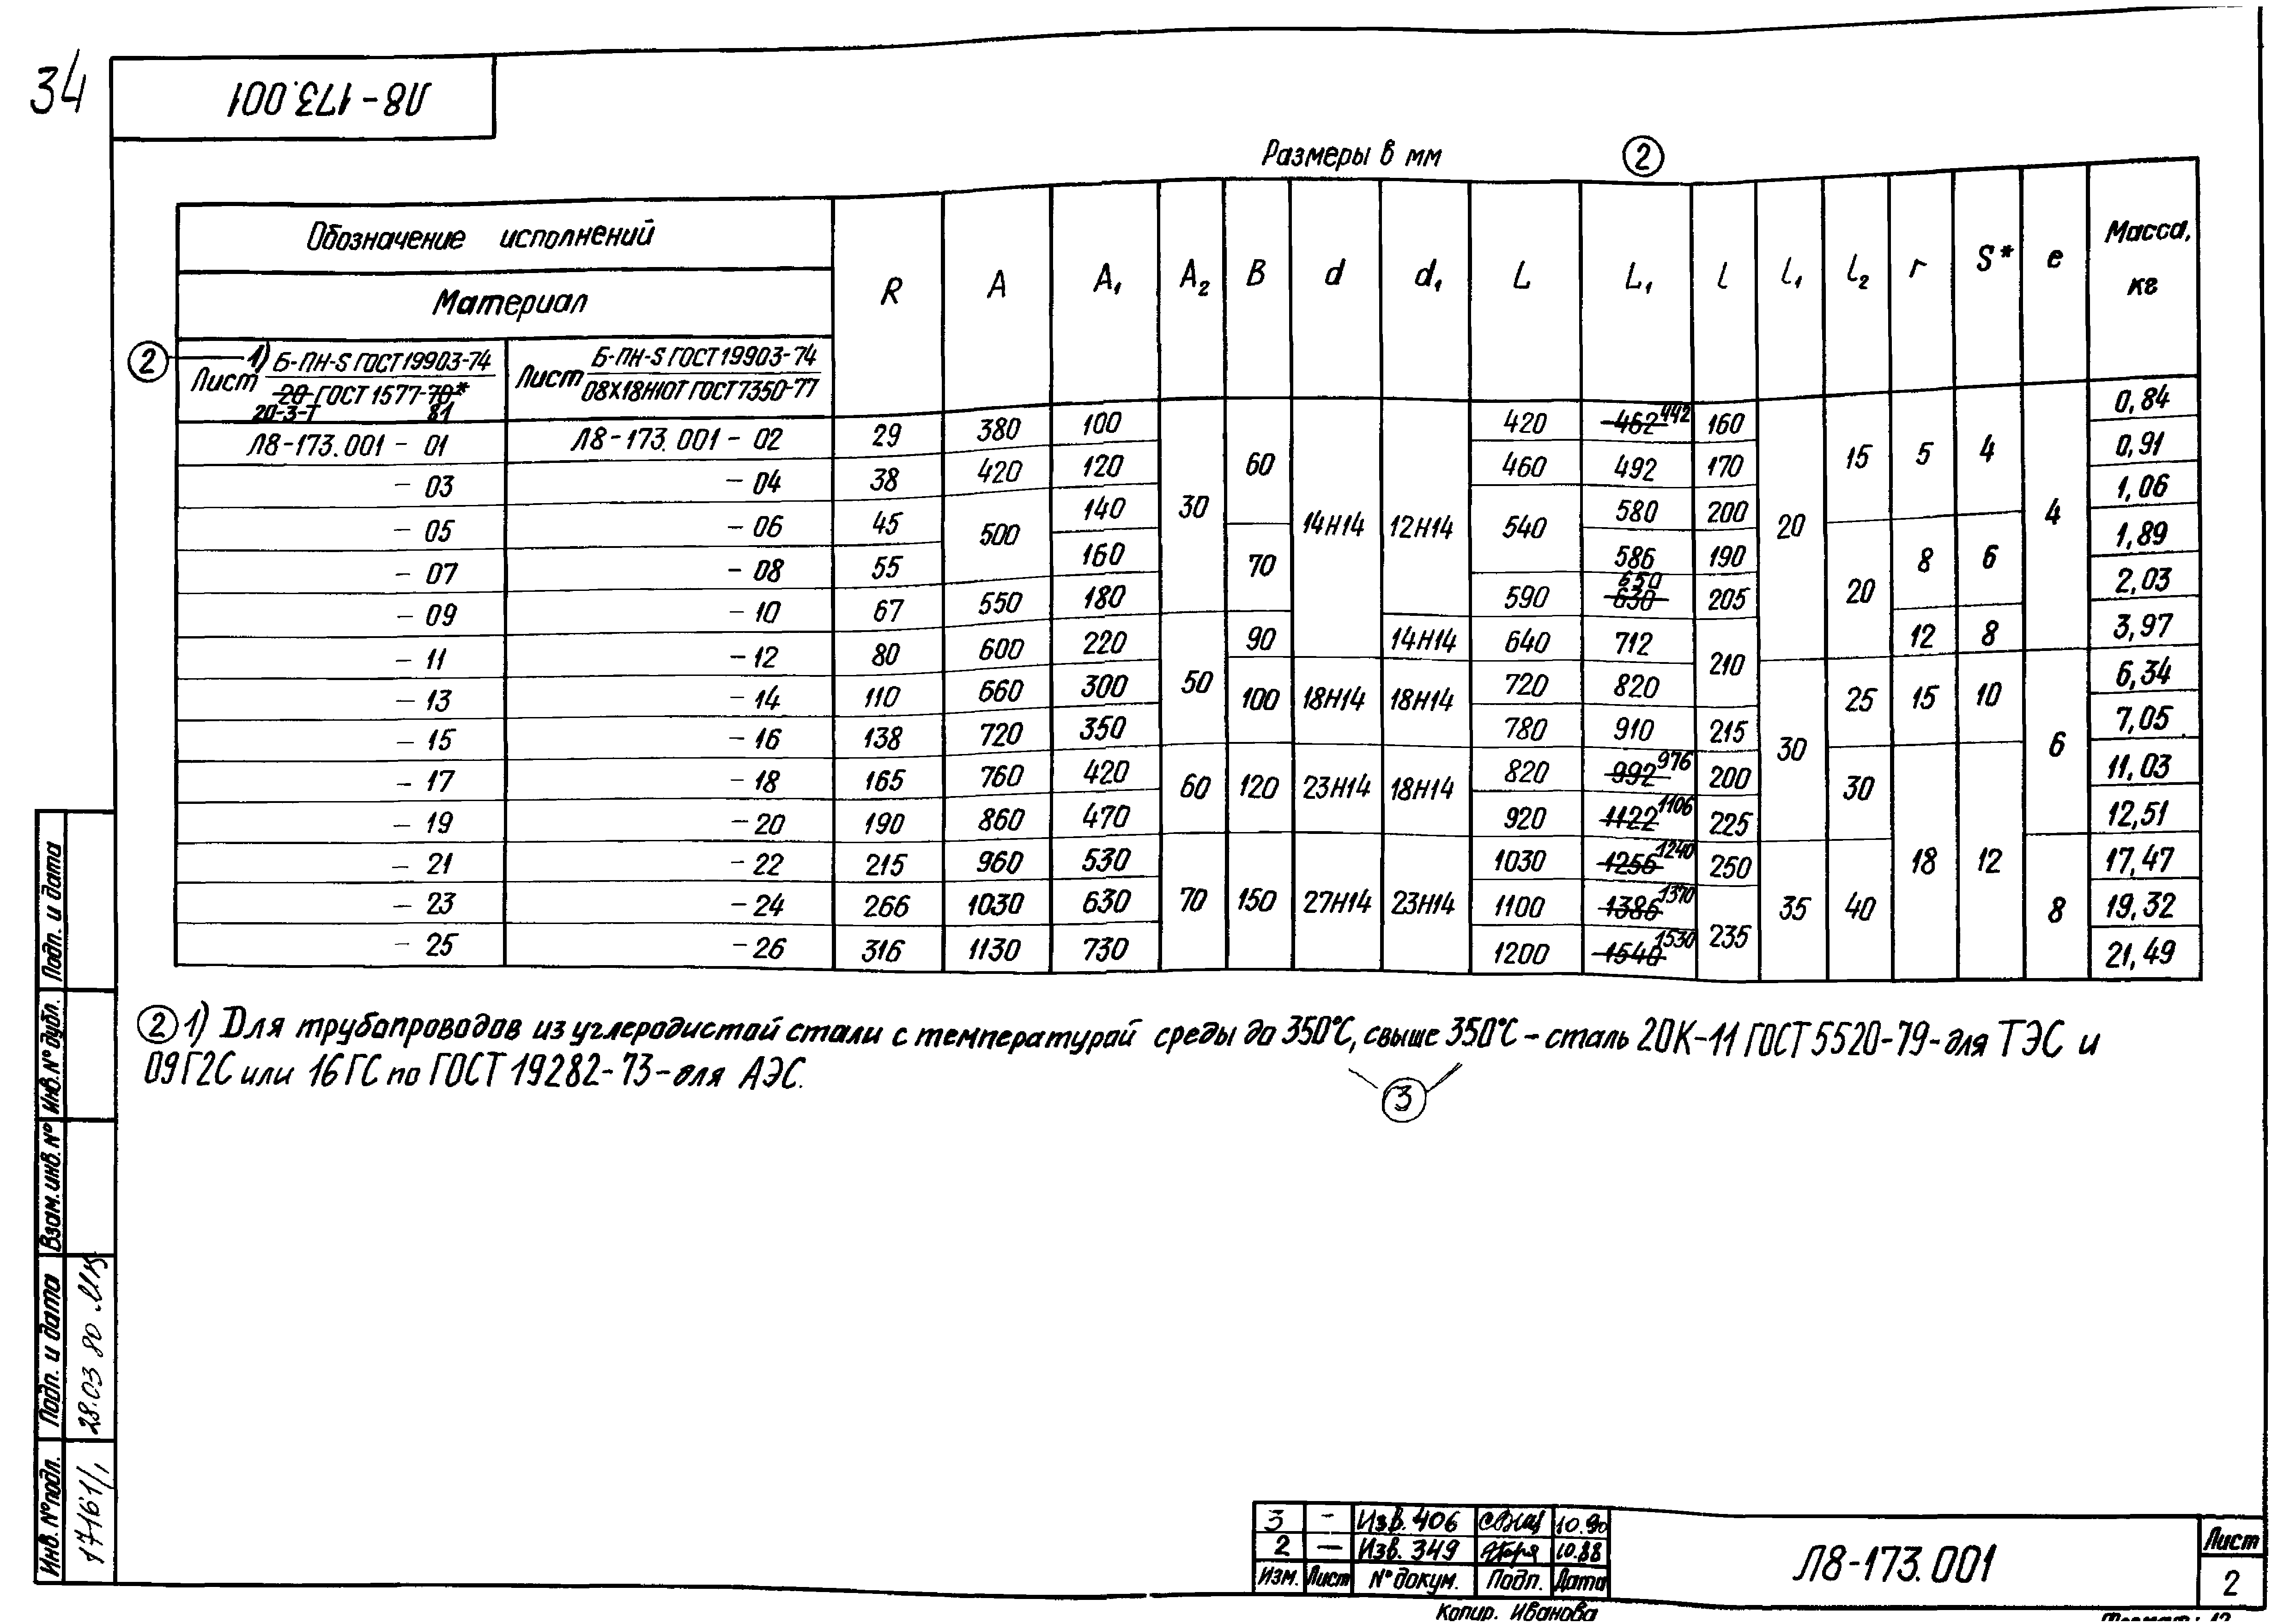 34
Л8-173.001
Размеры в мм ②
Обозначение исполнений
Материал
R A A₁ A₂ B d d₁ L L₁ l l₁ l₂ r S* e Масса, кг
② 1) Лист Б-ПН-S ГОСТ 19903-74 / 20 ГОСТ 1577-70* 20-3-Т 81
Лист Б-ПН-S ГОСТ 19903-74 / 08Х18Н10Т ГОСТ 7350-77
Л8-173.001 - 01 Л8-173.001 - 02 29 380 100 30 60 14Н14 12Н14 420 462 442 160 20 15 5 4 4 0,84
- 03 - 04 38 420 120 460 492 170 0,91
- 05 - 06 45 500 140 540 580 200 1,06
- 07 - 08 55 160 70 586 190 20 8 6 1,89
- 09 - 10 67 550 180 590 630 650 205 2,03
- 11 - 12 80 600 220 50 90 14Н14 640 712 210 12 8 3,97
- 13 - 14 110 660 300 100 18Н14 18Н14 720 820 30 25 15 10 6 6,34
- 15 - 16 138 720 350 780 910 215 7,05
- 17 - 18 165 760 420 60 120 23Н14 18Н14 820 992 976 200 30 18 12 11,03
- 19 - 20 190 860 470 920 1122 1106 225 12,51
- 21 - 22 215 960 530 70 150 27Н14 23Н14 1030 1256 1240 250 35 40 8 17,47
- 23 - 24 266 1030 630 1100 1386 1370 235 19,32
- 25 - 26 316 1130 730 1200 1540 1530 21,49
② 1) Для трубопроводов из углеродистой стали с температурой среды до 350°С, свыше 350°С - сталь 20К-11 ГОСТ 5520-79-для ТЭС и
09Г2С или 16ГС по ГОСТ 19282-73-для АЭС.
③
Подп. и дата
Инв. № дубл.
Взам. инв. №
Подп. и дата 28.03 80
Инв. № подл. 17161/1
3 - Изв. 406 10.90
2 - Изв. 349 10.88
Изм. Лист № докум. Подп. Дата
Л8-173.001
Лист
2
Копир. Иванова